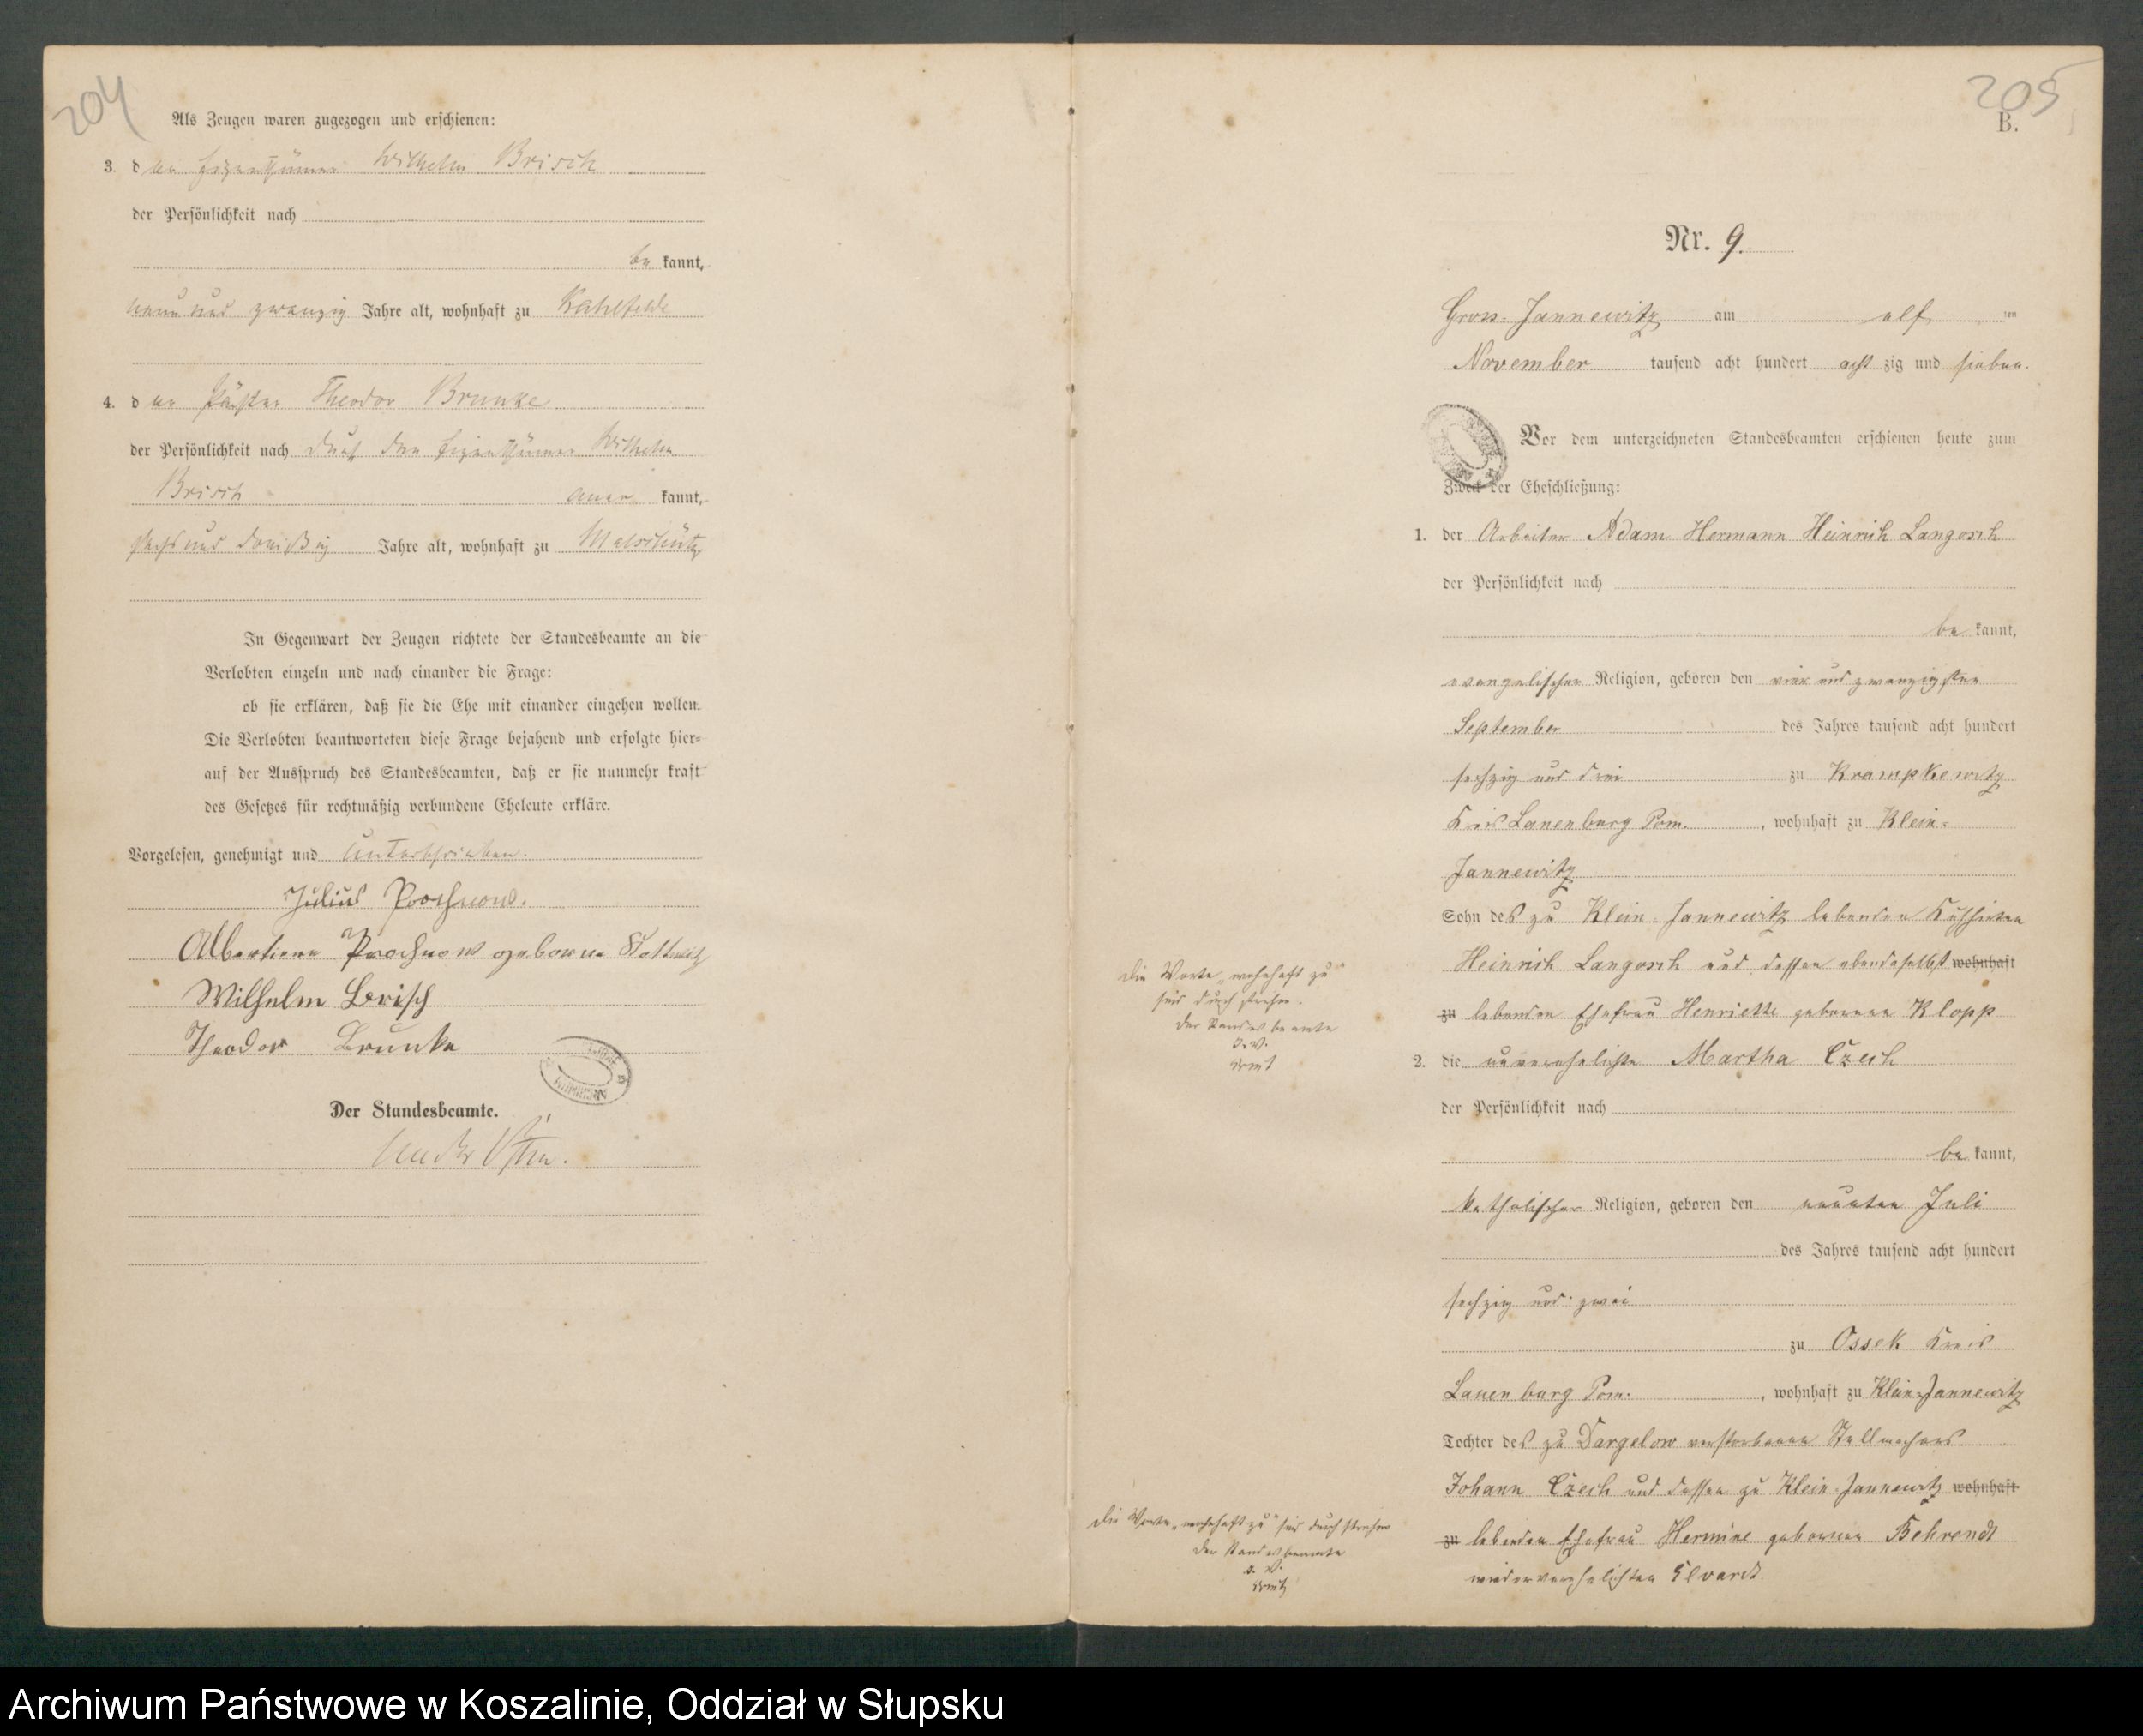 204
Als Zeugen waren zugezogen und erschienen:
3. der Eigenthümer Wilhelm Brisch
der Persönlichkeit nach
be kannt,
neun und zwanzig Jahre alt, wohnhaft zu Kahlfelde
4. der Theodor Brunke
der Persönlichkeit nach durch den Eigenthümer Wilhelm
Brisch aner kannt,
sechs und dreißig Jahre alt, wohnhaft zu Malschütz
In Gegenwart der Zeugen richtete der Standesbeamte an die
Verlobten einzeln und nach einander die Frage:
ob sie erklären, daß sie die Ehe mit einander eingehen wollen.
Die Verlobten beantworteten diese Frage bejahend und erfolgte hier-
auf der Ausspruch des Standesbeamten, daß er sie nunmehr kraft
des Gesetzes für rechtmäßig verbundene Eheleute erkläre.
Vorgelesen, genehmigt und unterschrieben.
Julius Prochnow.
Albertiene Prochnow geborne
Wilhelm Brisch
Theodor Brunke
Der Standesbeamte.
205
B.
Nr. 9.
Gross-Jannewitz am elf ten
November tausend acht hundert acht zig und sieben.
Vor dem unterzeichneten Standesbeamten erschienen heute zum
Zweck der Eheschließung:
1. der Arbeiter Adam Hermann Heinrich Langosch
der Persönlichkeit nach
be kannt,
evangelischer Religion, geboren den vier und zwanzigsten
September des Jahres tausend acht hundert
sechzig und drei zu Krampkewitz
Kreis Lauenburg Pom. , wohnhaft zu Klein-
Jannewitz
Sohn des zu Klein-Jannewitz lebenden Kuhhirten
Heinrich Langosch und dessen ebendaselbst wohnhaft
zu lebenden Ehefrau Henriette geborenen Klopp
Die Worte „wohnhaft zu"
sind durchstrichen.
Der Standesbeamte
I. V.
2. die unverehelichte Martha Czech
der Persönlichkeit nach
be kannt,
katholischer Religion, geboren den neunten Juli
des Jahres tausend acht hundert
sechzig und zwei
zu Ossek Kreis
Lauenburg Pom. , wohnhaft zu Klein-Jannewitz
Tochter des zu Dargelow verstorbenen Stellmachers
Johann Czech und dessen zu Klein-Jannewitz wohnhaft
zu lebenden Ehefrau Hermine geborenen Behrendt
wiederverehelichten Elvardt.
Die Worte „wohnhaft zu" sind durchstrichen
Der Standesbeamte
I. V.
Archiwum Państwowe w Koszalinie, Oddział w Słupsku